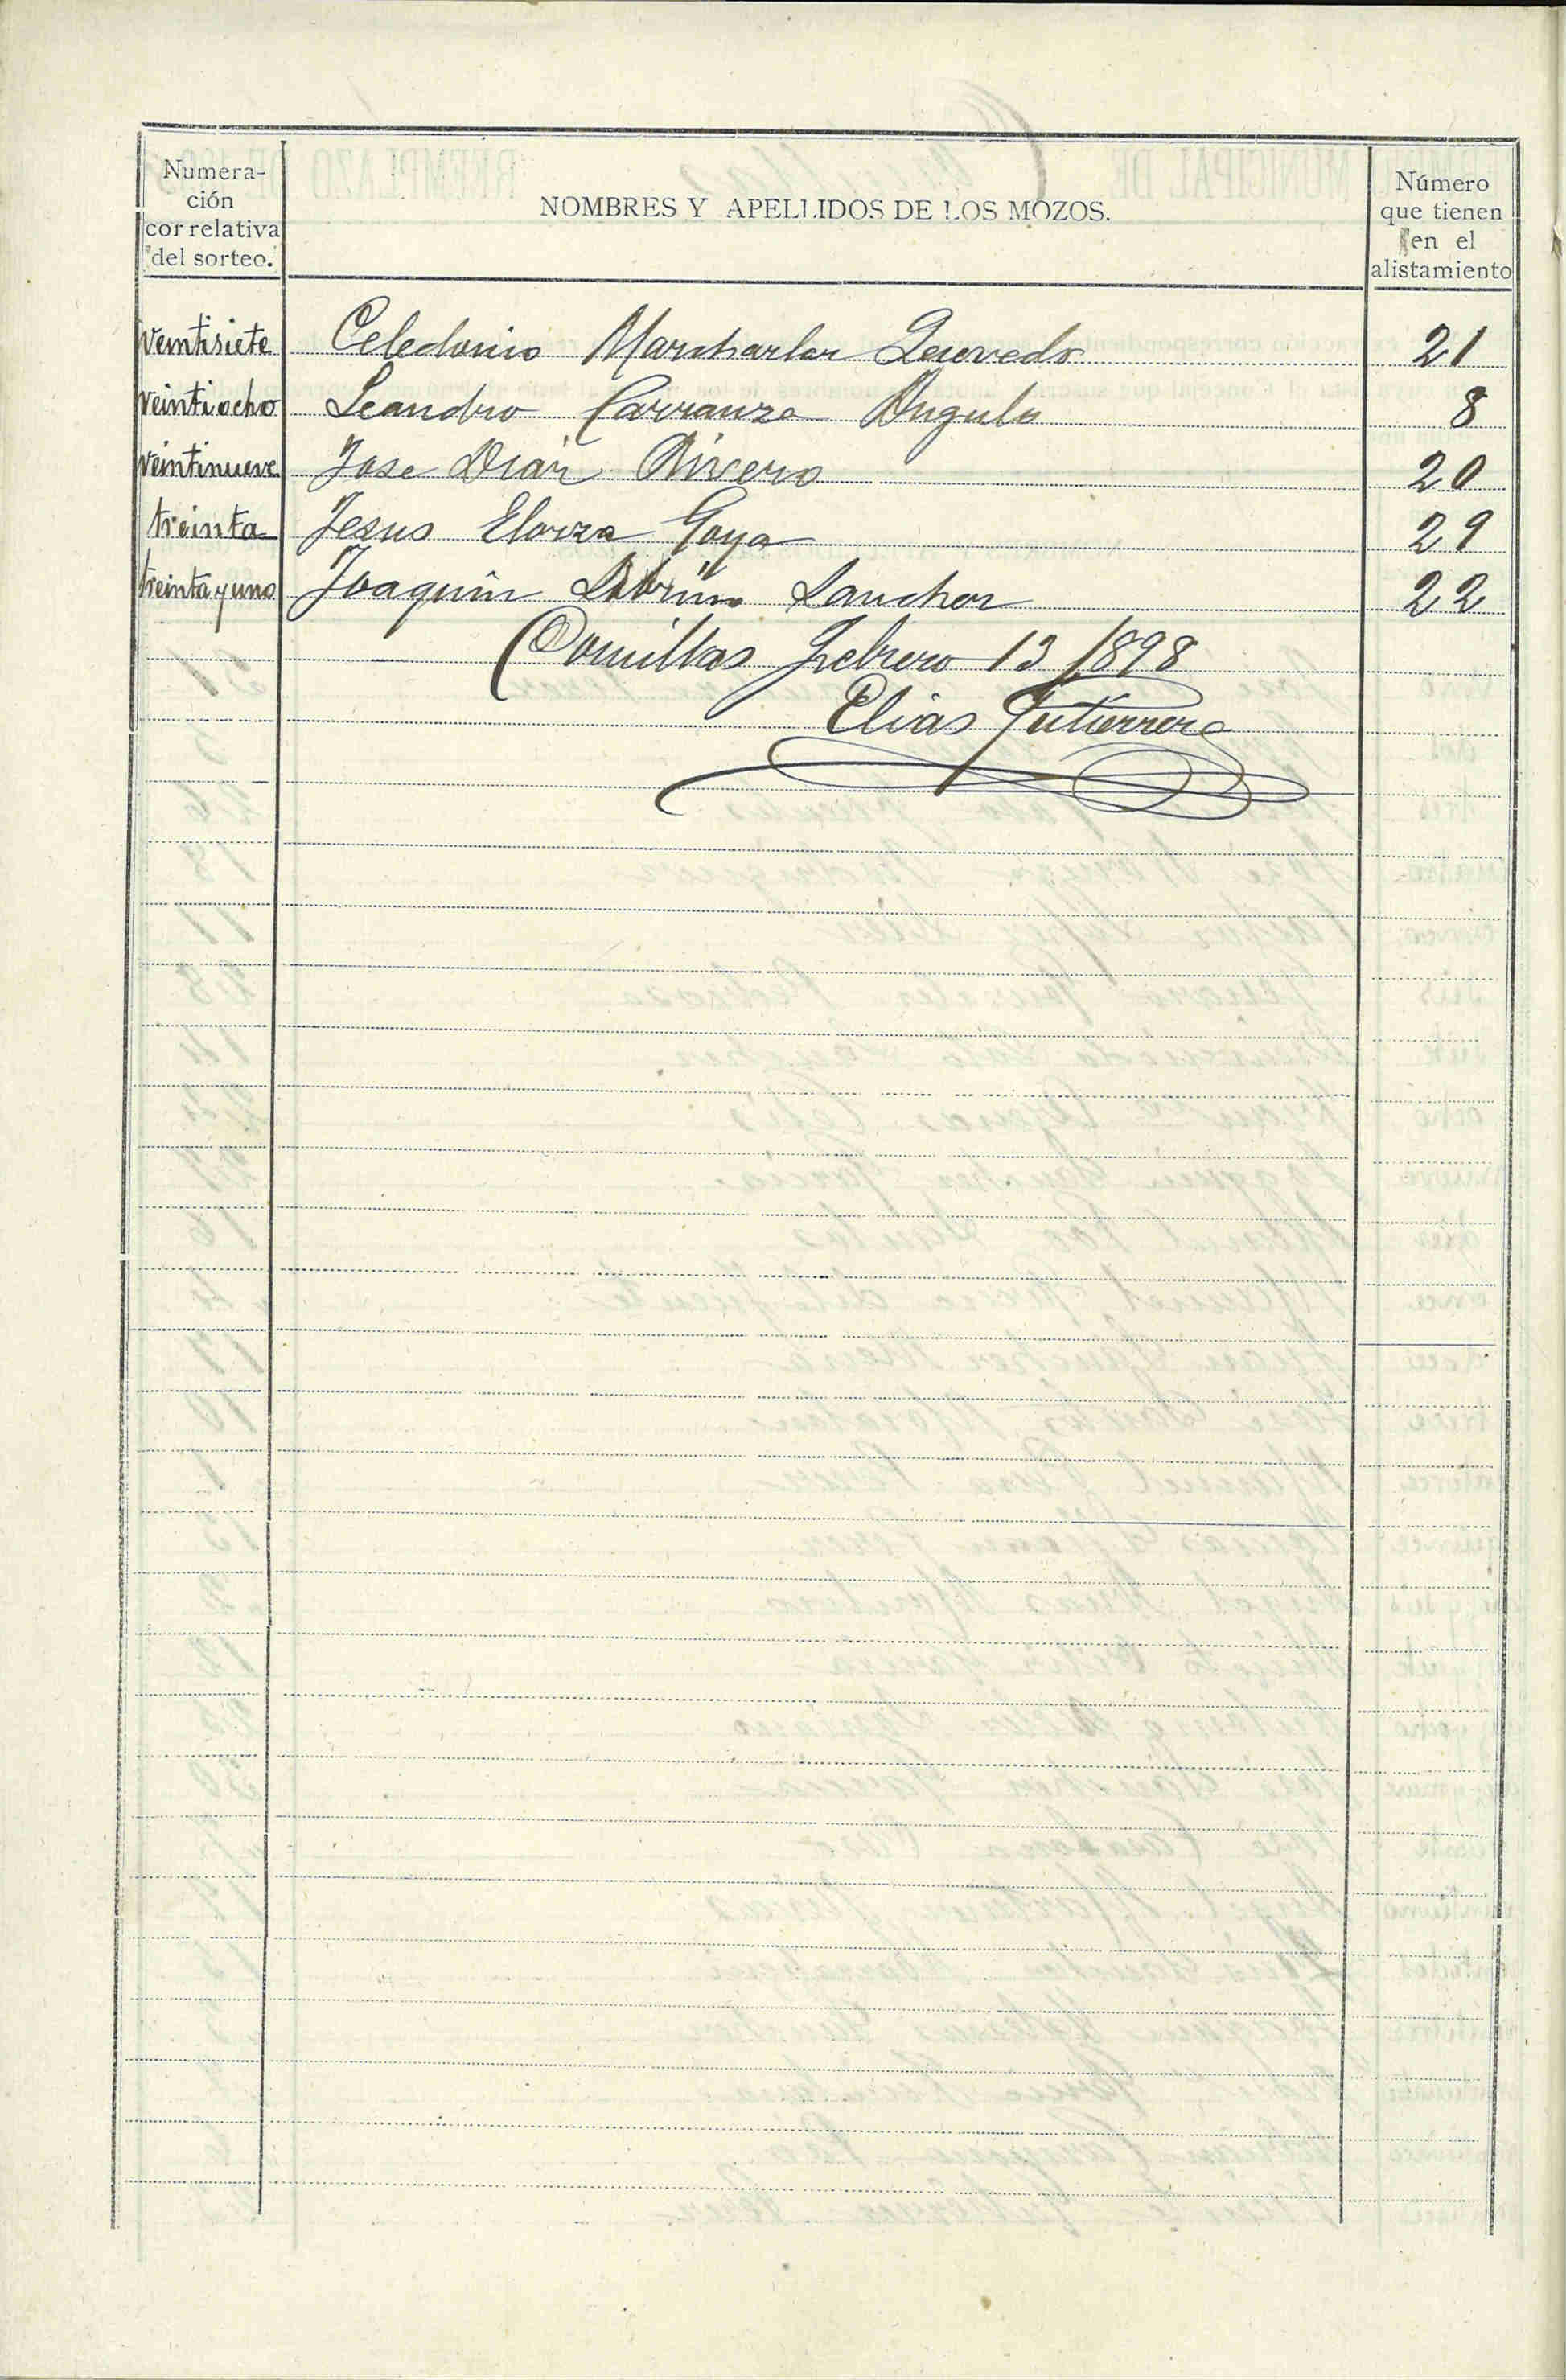 Numera-
ción
correlativa
del sorteo.
NOMBRES Y APELLIDOS DE LOS MOZOS.
Número
que tienen
en el
alistamiento
veintisiete Celedonio 21
veintiocho Leandro Carranza Angulo 8
veintinueve Jose Diaz Rivero 20
treinta Jesus Elorza Goya 29
treinta y uno Joaquin Sanchez 22
Comillas Febrero 13 1898
Elias Gutierrez